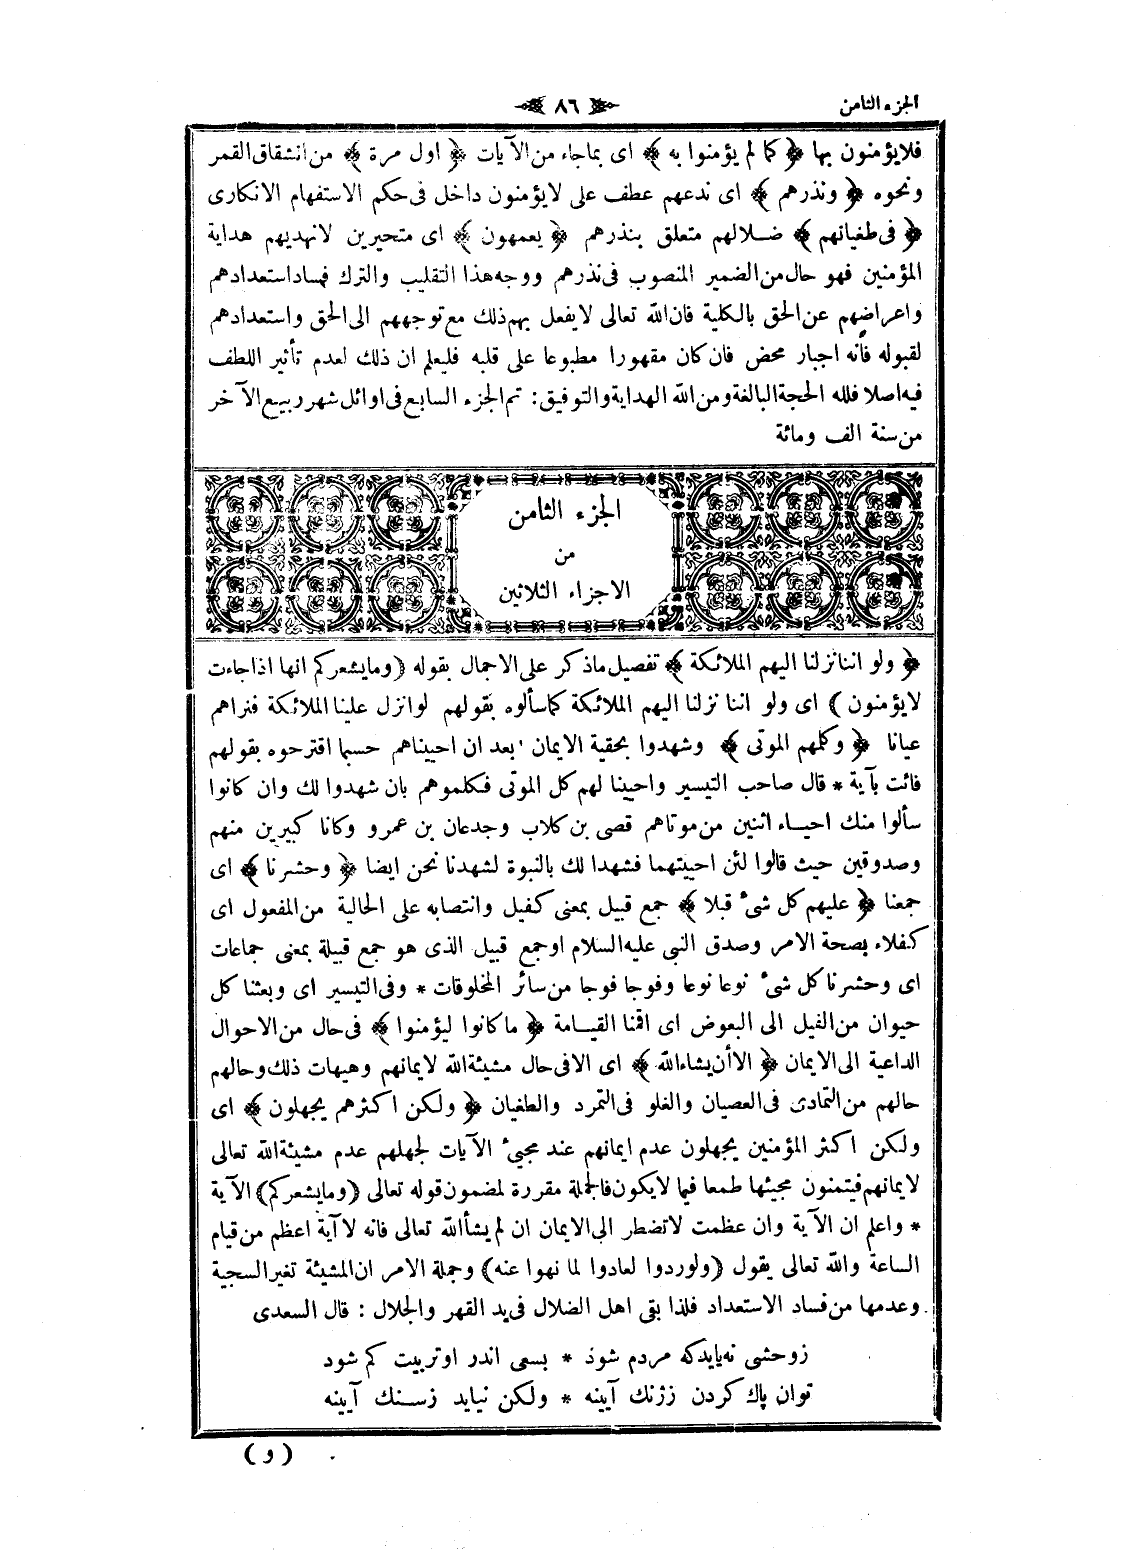 الجزء الثامن
٨٦
فلايؤمنون بها ﴿ كما لم يؤمنوا به ﴾ اى بماجاء من الآيات ﴿ اول مرة ﴾ من انشقاق القمر
ونحوه ﴿ ونذرهم ﴾ اى ندعهم عطف على لايؤمنون داخل فى حكم الاستفهام الانكارى
﴿ فى طغيانهم ﴾ ضلالهم متعلق بنذرهم ﴿ يعمهون ﴾ اى متحيرين لانهديهم هداية
المؤمنين فهو حال من الضمير المنصوب فى نذرهم ووجه هذا التقليب والترك فساد استعدادهم
واعراضهم عن الحق بالكلية فان الله تعالى لايفعل بهم ذلك مع توجههم الى الحق واستعدادهم
لقبوله فأنه اجبار محض فان كان مقهورا مطبوعا على قلبه فليعلم ان ذلك لعدم تأثير اللطف
فيه اصلا فلله الحجة البالغة ومن الله الهداية والتوفيق : تم الجزء السابع فى اوائل شهر ربيع الآخر
من سنة الف ومائة
الجزء الثامن
من
الاجزاء الثلاثين
﴿ ولو اننا نزلنا اليهم الملائكة ﴾ تفصيل ماذكر على الاجمال بقوله ( ومايشعركم انها اذا جاءت
لايؤمنون ) اى ولو اننا نزلنا اليهم الملائكة كما سألوه بقولهم لوانزل علينا الملائكة فنراهم
عيانا ﴿ وكلمهم الموتى ﴾ وشهدوا بحقية الايمان بعد ان احييناهم حسبما اقترحوه بقولهم
فائت بآية * قال صاحب التيسير واحيينا لهم كل الموتى فكلموهم بان شهدوا لك وان كانوا
سألوا منك احياء اثنين من موتاهم قصى بن كلاب وجدعان بن عمرو وكانا كبيرين منهم
وصدوقين حيث قالوا لئن احييتهما فشهدا لك بالنبوة لشهدنا نحن ايضا ﴿ وحشرنا ﴾ اى
جمعنا ﴿ عليهم كل شىء قبلا ﴾ جمع قبيل بمعنى كفيل وانتصابه على الحالية من المفعول اى
كفلاء بصحة الامر وصدق النبى عليه السلام اوجمع قبيل الذى هو جمع قبيلة بمعنى جماعات
اى وحشرنا كل شىء نوعا نوعا وفوجا فوجا من سائر المخلوقات * وفى التيسير اى وبعثنا كل
حيوان من الفيل الى البعوض اى اقمنا القيامة ﴿ ما كانوا ليؤمنوا ﴾ فى حال من الاحوال
الداعية الى الايمان ﴿ الا أن يشاء الله ﴾ اى الا فى حال مشيئة الله لايمانهم وهيهات ذلك وحالهم
حالهم من التمادى فى العصيان والغلو فى التمرد والطغيان ﴿ ولكن اكثرهم يجهلون ﴾ اى
ولكن اكثر المؤمنين يجهلون عدم ايمانهم عند مجىء الآيات لجهلهم عدم مشيئة الله تعالى
لايمانهم فيتمنون مجيئها طمعا فيما لايكون فالجملة مقررة لمضمون قوله تعالى ( ومايشعركم ) الآية
* واعلم ان الآية وان عظمت لاتضطر الى الايمان ان لم يشأ الله تعالى فانه لا آية اعظم من قيام
الساعة والله تعالى يقول ( ولوردوا لعادوا لما نهوا عنه ) وجملة الامر ان المشيئة تغير السجية
وعدمها من فساد الاستعداد فلذا بقى اهل الضلال فى يد القهر والجلال : قال السعدى
زوحشى نه‌يايد كه مردم شوذ * بسعى اندر اوتربيت كم شود
توان پاك كردن زژنك آيينه * ولكن نيايد زسنك آيينه
( و )